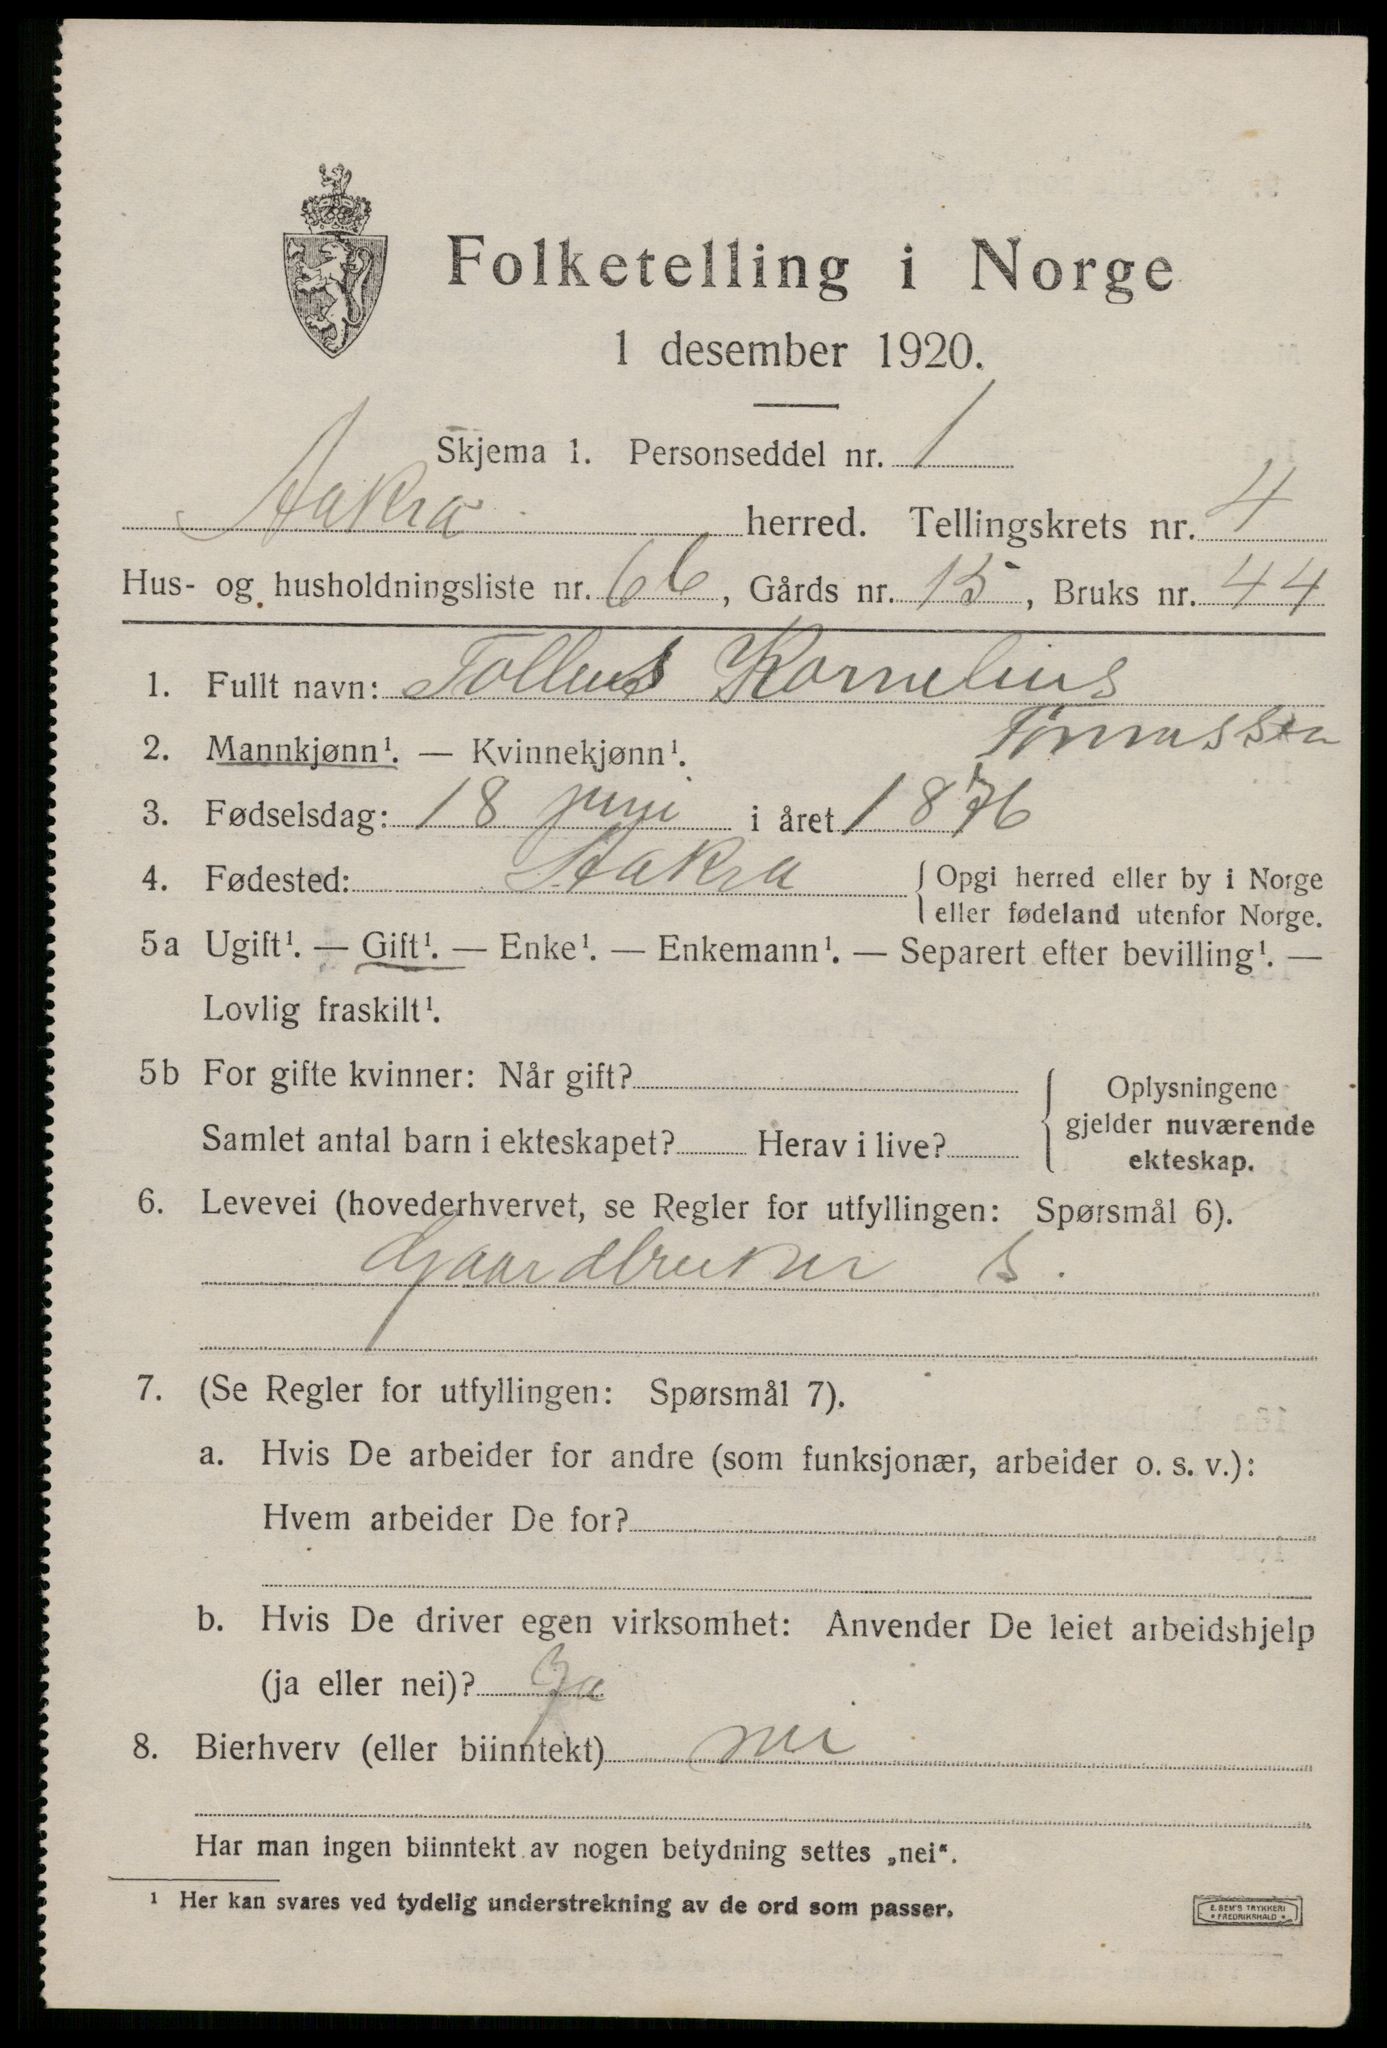 Folketelling i Norge
1 desember 1920.
Skjema 1. Personseddel nr. 1
Aakra herred. Tellingskrets nr. 4
Hus- og husholdningsliste nr. 66, Gårds nr. 15, Bruks nr. 44
1. Fullt navn: Tolleus Kornelius
Tønnassen
2. Mannkjønn¹. — Kvinnekjønn¹.
3. Fødselsdag: 18 juni i året 1876
4. Fødested: Aakra { Opgi herred eller by i Norge
eller fødeland utenfor Norge.
5a Ugift¹. — Gift¹. — Enke¹. — Enkemann¹. — Separert efter bevilling¹. —
Lovlig fraskilt¹.
5b For gifte kvinner: Når gift? { Oplysningene
gjelder nuværende
Samlet antal barn i ekteskapet? Herav i live?
ekteskap.
6. Levevei (hovederhvervet, se Regler for utfyllingen: Spørsmål 6).
Gaardbruker S.
7. (Se Regler for utfyllingen: Spørsmål 7).
a. Hvis De arbeider for andre (som funksjonær, arbeider o. s. v.):
Hvem arbeider De for?
b. Hvis De driver egen virksomhet: Anvender De leiet arbeidshjelp
(ja eller nei)? Ja
8. Bierhverv (eller biinntekt) nei
Har man ingen biinntekt av nogen betydning settes „nei“.
¹ Her kan svares ved tydelig understrekning av de ord som passer.
E. SEM'S TRYKKERI
FREDRIKSHALD